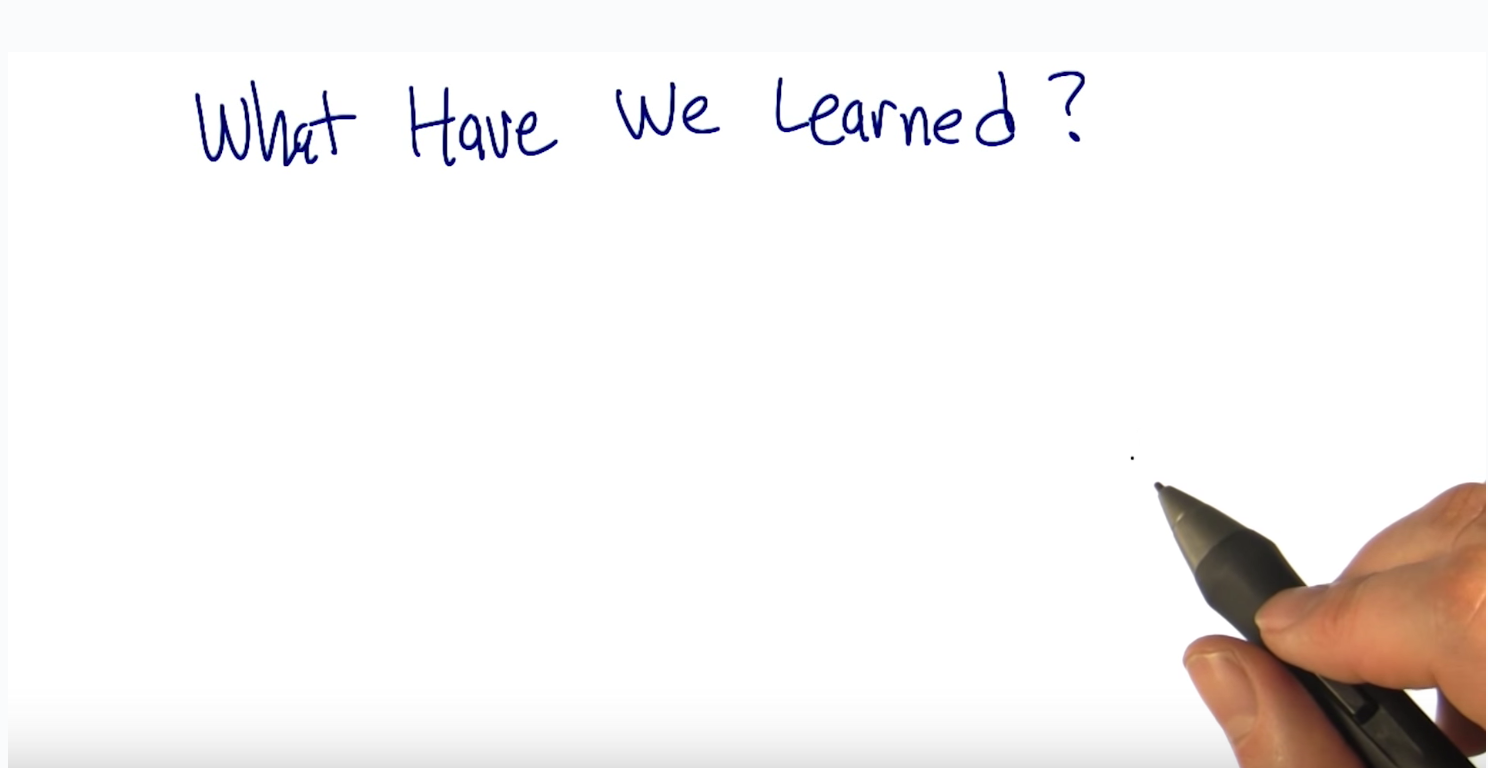 What Have We Learned?